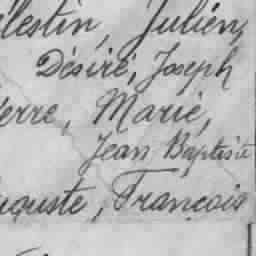 élestin, Julien,
Désiré, Joseph
ierre, Marie,
Jean Baptiste
uguste, François